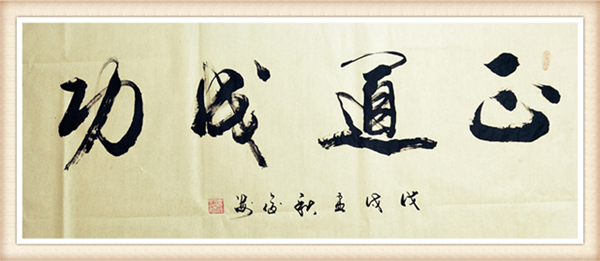 正道成功
戊戌孟秋